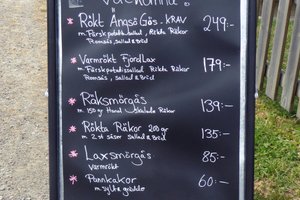 Välkomna!
* Rökt Ängsö Gös. KRAV 249:-
m. Färskpotatissallad, Rökta Räkor
Romsås, Sallad & Bröd
* Varmrökt FjordLax 179:-
m. Färskpotatissallad Rökta Räkor
Romsås, sallad & Bröd
* Räksmörgås 139:-
m. 150 gr Hand skalade Räkor
* Rökta Räkor 200 gr 135:-
m 2 st såser Sallad & Bröd
* Laxsmörgås 85:-
Varmrökt
* Pannkakor 60:-
m sylt & grädde